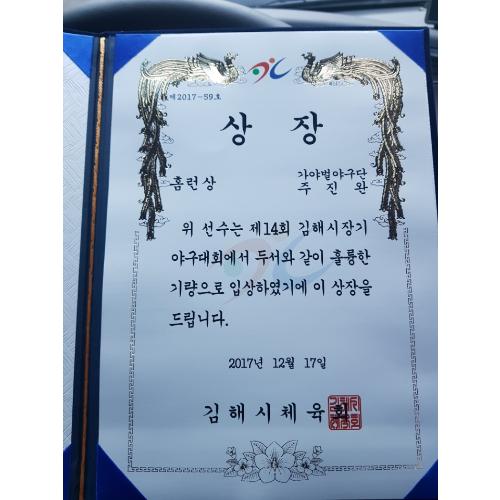 제2017-59호
상 장
홈런상
가야벌야구단
주 진 완
위 선수는 제14회 김해시장기
야구대회에서 두서와 같이 훌륭한
기량으로 입상하였기에 이 상장을
드립니다.
2017년 12월 17일
김해시체육회